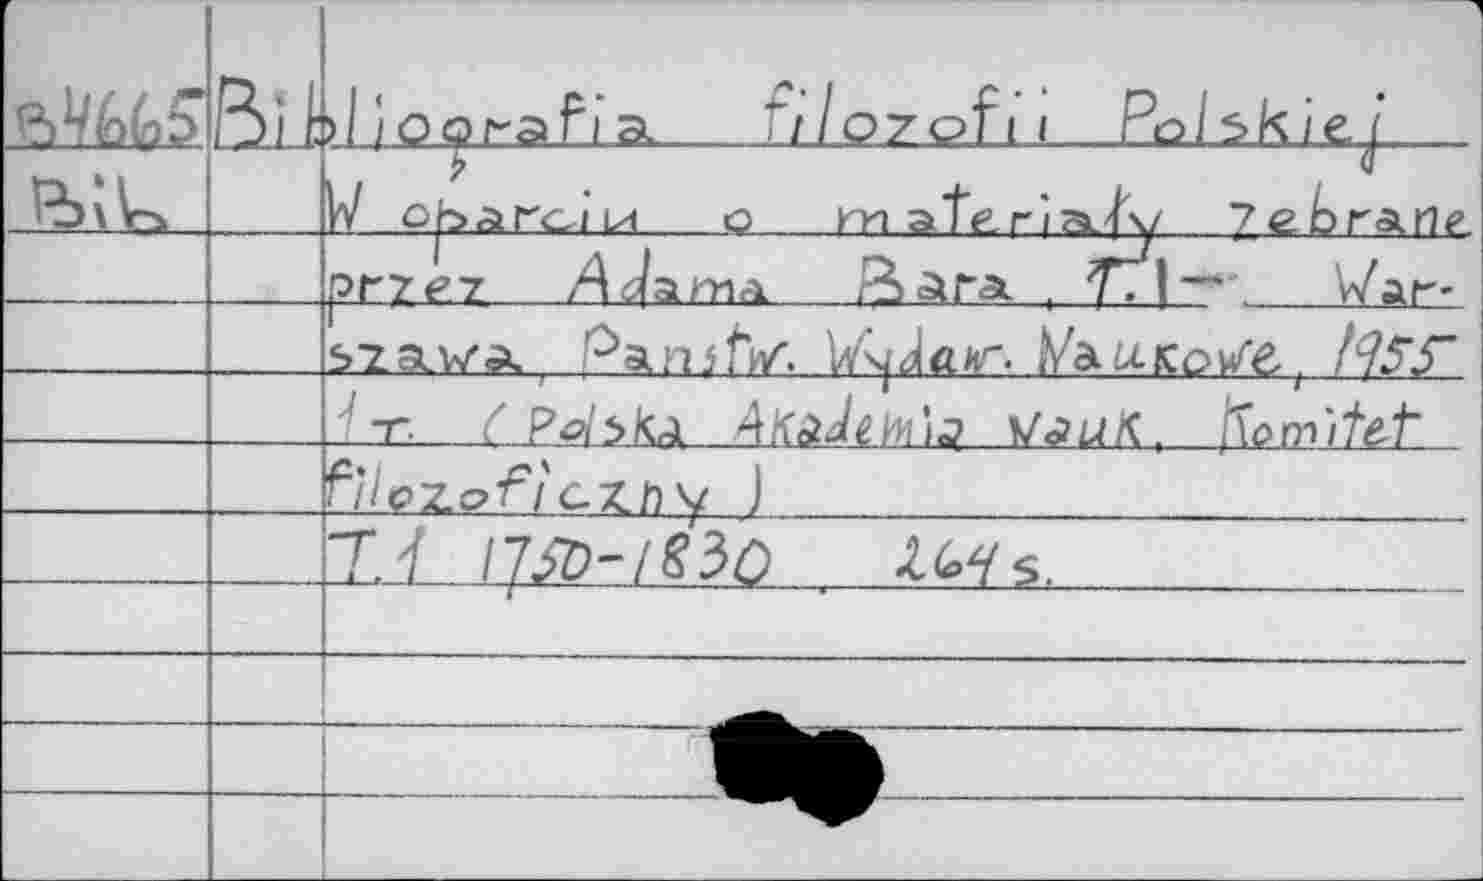 B4665 Bibljografia filozofii Polskiej
Bib W oparciu o materiały zebrane
przez Adama Bara. T.1— War-
szawa, Państw. Wydaw. Naukowe, 1955
1 т. (Polska Akademia Nauk. Komitet
filozoficzny)
T.1 1750-1830. 264 s.